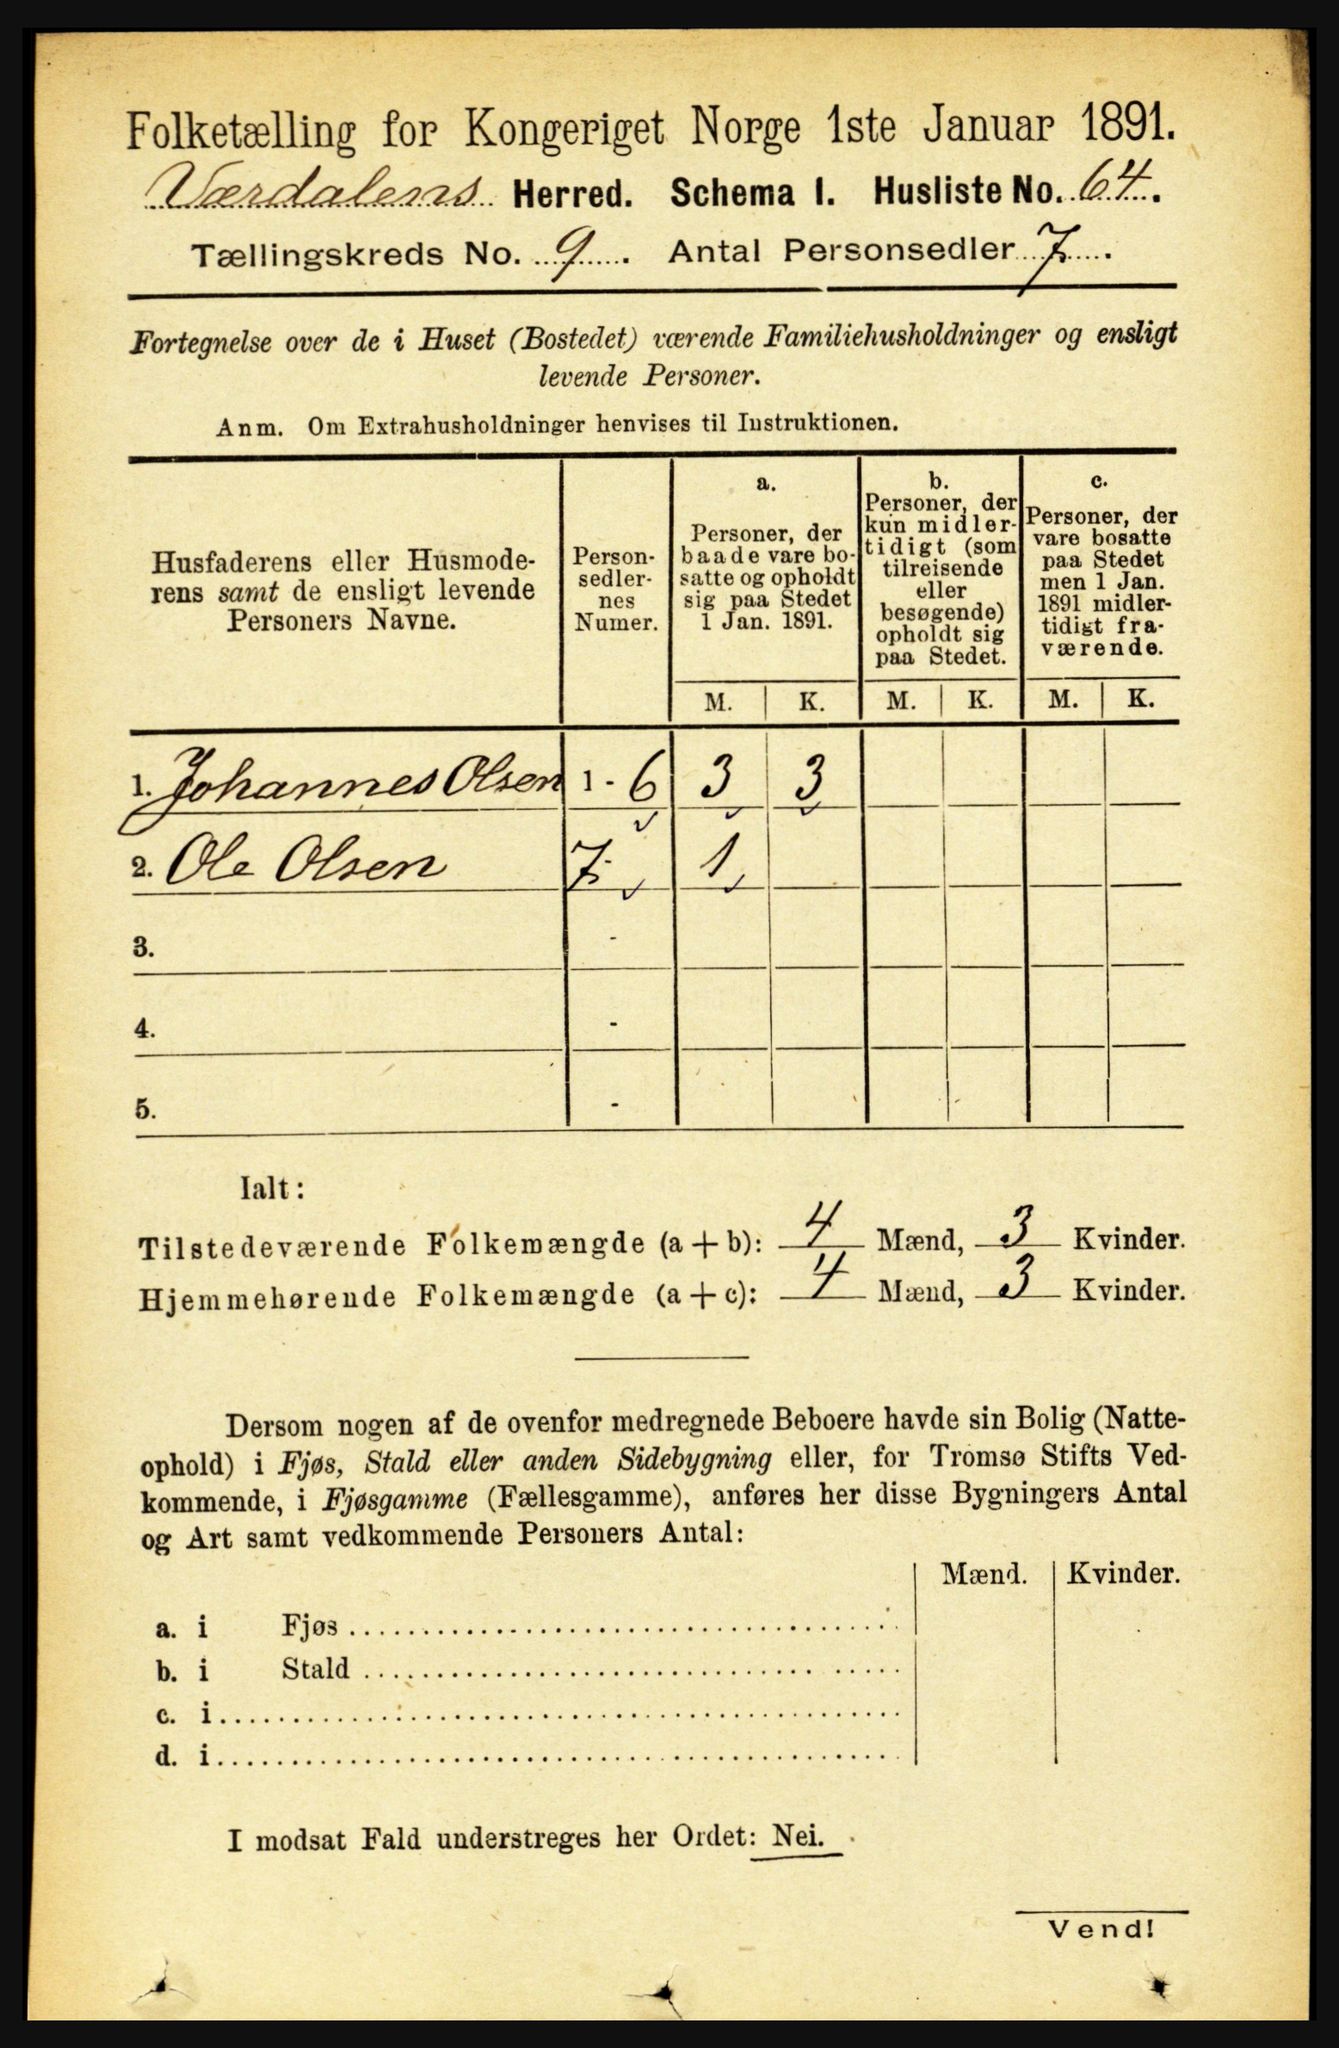 Folketælling for Kongeriget Norge 1ste Januar 1891.
Værdalens Herred. Schema 1. Husliste No. 64.
Tællingskreds No. 9. Antal Personsedler 7.
Fortegnelse over de i Huset (Bostedet) værende Familiehusholdninger og ensligt
levende Personer.
Anm. Om Extrahusholdninger henvises til Instruktionen.
Husfaderens eller Husmode-
rens samt de ensligt levende
Personers Navne.
Person-
sedler-
nes
Numer.
a.
Personer, der
baade vare bo-
satte og opholdt
sig paa Stedet
1 Jan. 1891.
b.
Personer, der
kun midler-
tidigt (som
tilreisende
eller
besøgende)
opholdt sig
paa Stedet.
c.
Personer, der
vare bosatte
paa Stedet
men 1 Jan.
1891 midler-
tidigt fra-
værende.
M. K. M. K. M. K.
1. Johannes Olsen 1 - 6 3 3
2. Ole Olsen 7 - 1
3. -
4. -
5. -
Ialt:
Tilstedeværende Folkemængde (a + b): 4 Mænd, 3 Kvinder.
Hjemmehørende Folkemængde (a + c): 4 Mænd, 3 Kvinder.
Dersom nogen af de ovenfor medregnede Beboere havde sin Bolig (Natte-
ophold) i Fjøs, Stald eller anden Sidebygning eller, for Tromsø Stifts Ved-
kommende, i Fjøsgamme (Fællesgamme), anføres her disse Bygningers Antal
og Art samt vedkommende Personers Antal:
Mænd. Kvinder.
a. i Fjøs
b. i Stald
c. i
d. i
I modsat Fald understreges her Ordet: Nei.
Vend!